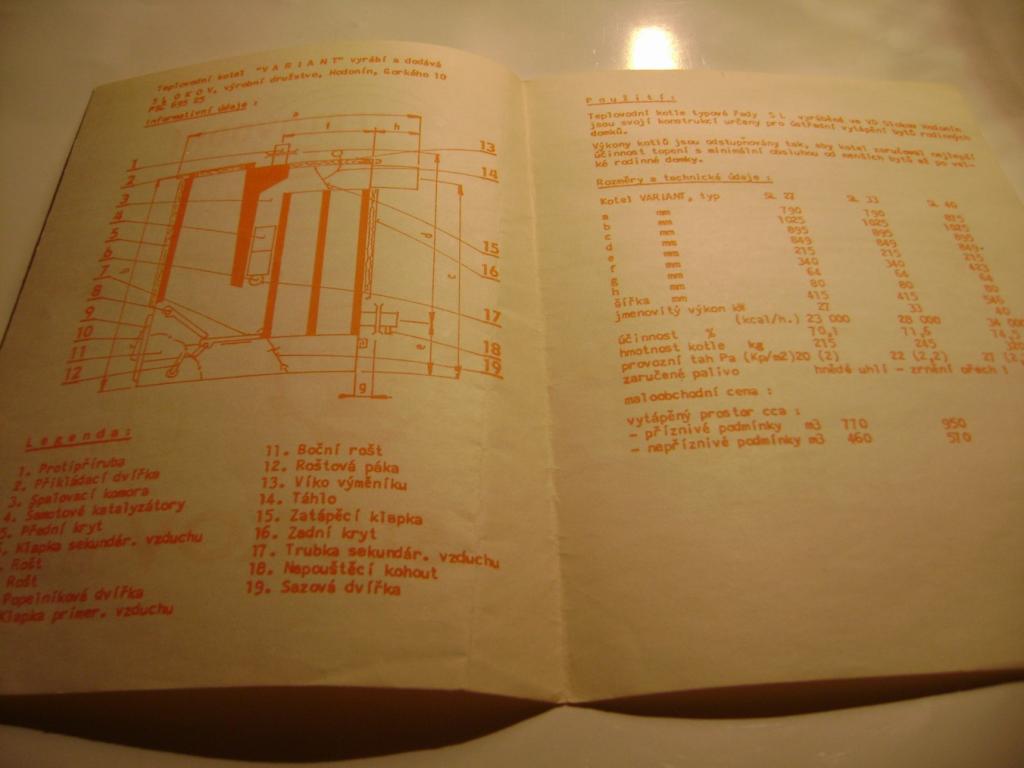 Teplovodní kotel "VARIANT" vyrábí a dodává
SLOKOV, výrobní družstvo, Hodonín, Gorkého 10
PSČ 695 25
Informativní údaje :
a
f h
1
2
3
4
5
6
7
8
9
10
11
12
13
14
15
16
17
18
19
b
d
c
e
g
Legenda:
1. Protipříruba
2. Přikládací dvířka
3. Spalovací komora
4. Šamotové katalyzátory
5. Přední kryt
Klapka sekundár. vzduchu
Rošt
Rošt
Popelníková dvířka
Klapka primer. vzduchu
11. Boční rošt
12. Roštová páka
13. Víko výměníku
14. Táhlo
15. Zatápěcí klapka
16. Zadní kryt
17. Trubka sekundár. vzduchu
18. Napouštěcí kohout
19. Sazová dvířka
Použití:
Teplovodní kotle typové řady SL vyráběné ve VD Slokov Hodonín
jsou svojí konstrukcí určeny pro ústřední vytápění bytů rodinných
domků.
Výkony kotlů jsou odstupňovány tak, aby kotel zaručoval nejlepší
účinnost topení s minimální obsluhou od menších bytů až po vel-
ké rodinné domky.
Rozměry a technické údaje :
Kotel VARIANT, typ SL 22 SL 33 SL 40
a mm 790 790 825
b mm 1025 1025 1025
c mm 895 895 895
d mm 849 849 849
e mm 215 215 215
f mm 340 340 423
g mm 64 64 64
h mm 80 80 80
šířka mm 415 415 546
jmenovitý výkon kW 27 33 40
(kcal/h.) 23 000 28 000 34 000
účinnost % 70,1 71,6 74,5
hmotnost kotle kg 215 245
provozní tah Pa (Kp/m2) 20 (2) 22 (2,2) 27 (2,
zaručené palivo hnědé uhlí - zrnění ořech 1
maloobchodní cena :
vytápěný prostor cca :
- příznivé podmínky m3 770 950
- nepříznivé podmínky m3 460 570